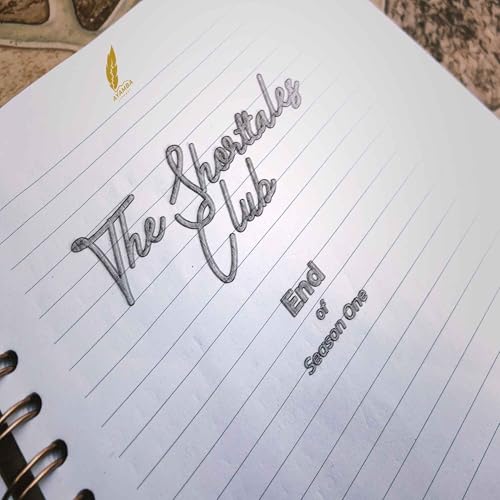 AYAMBA
The Shorttales
Club
End
of
Season One